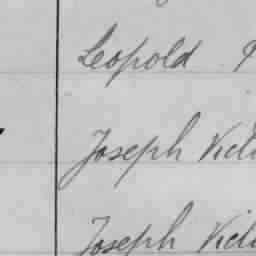 Leopold
Joseph Vict
Joseph Vict